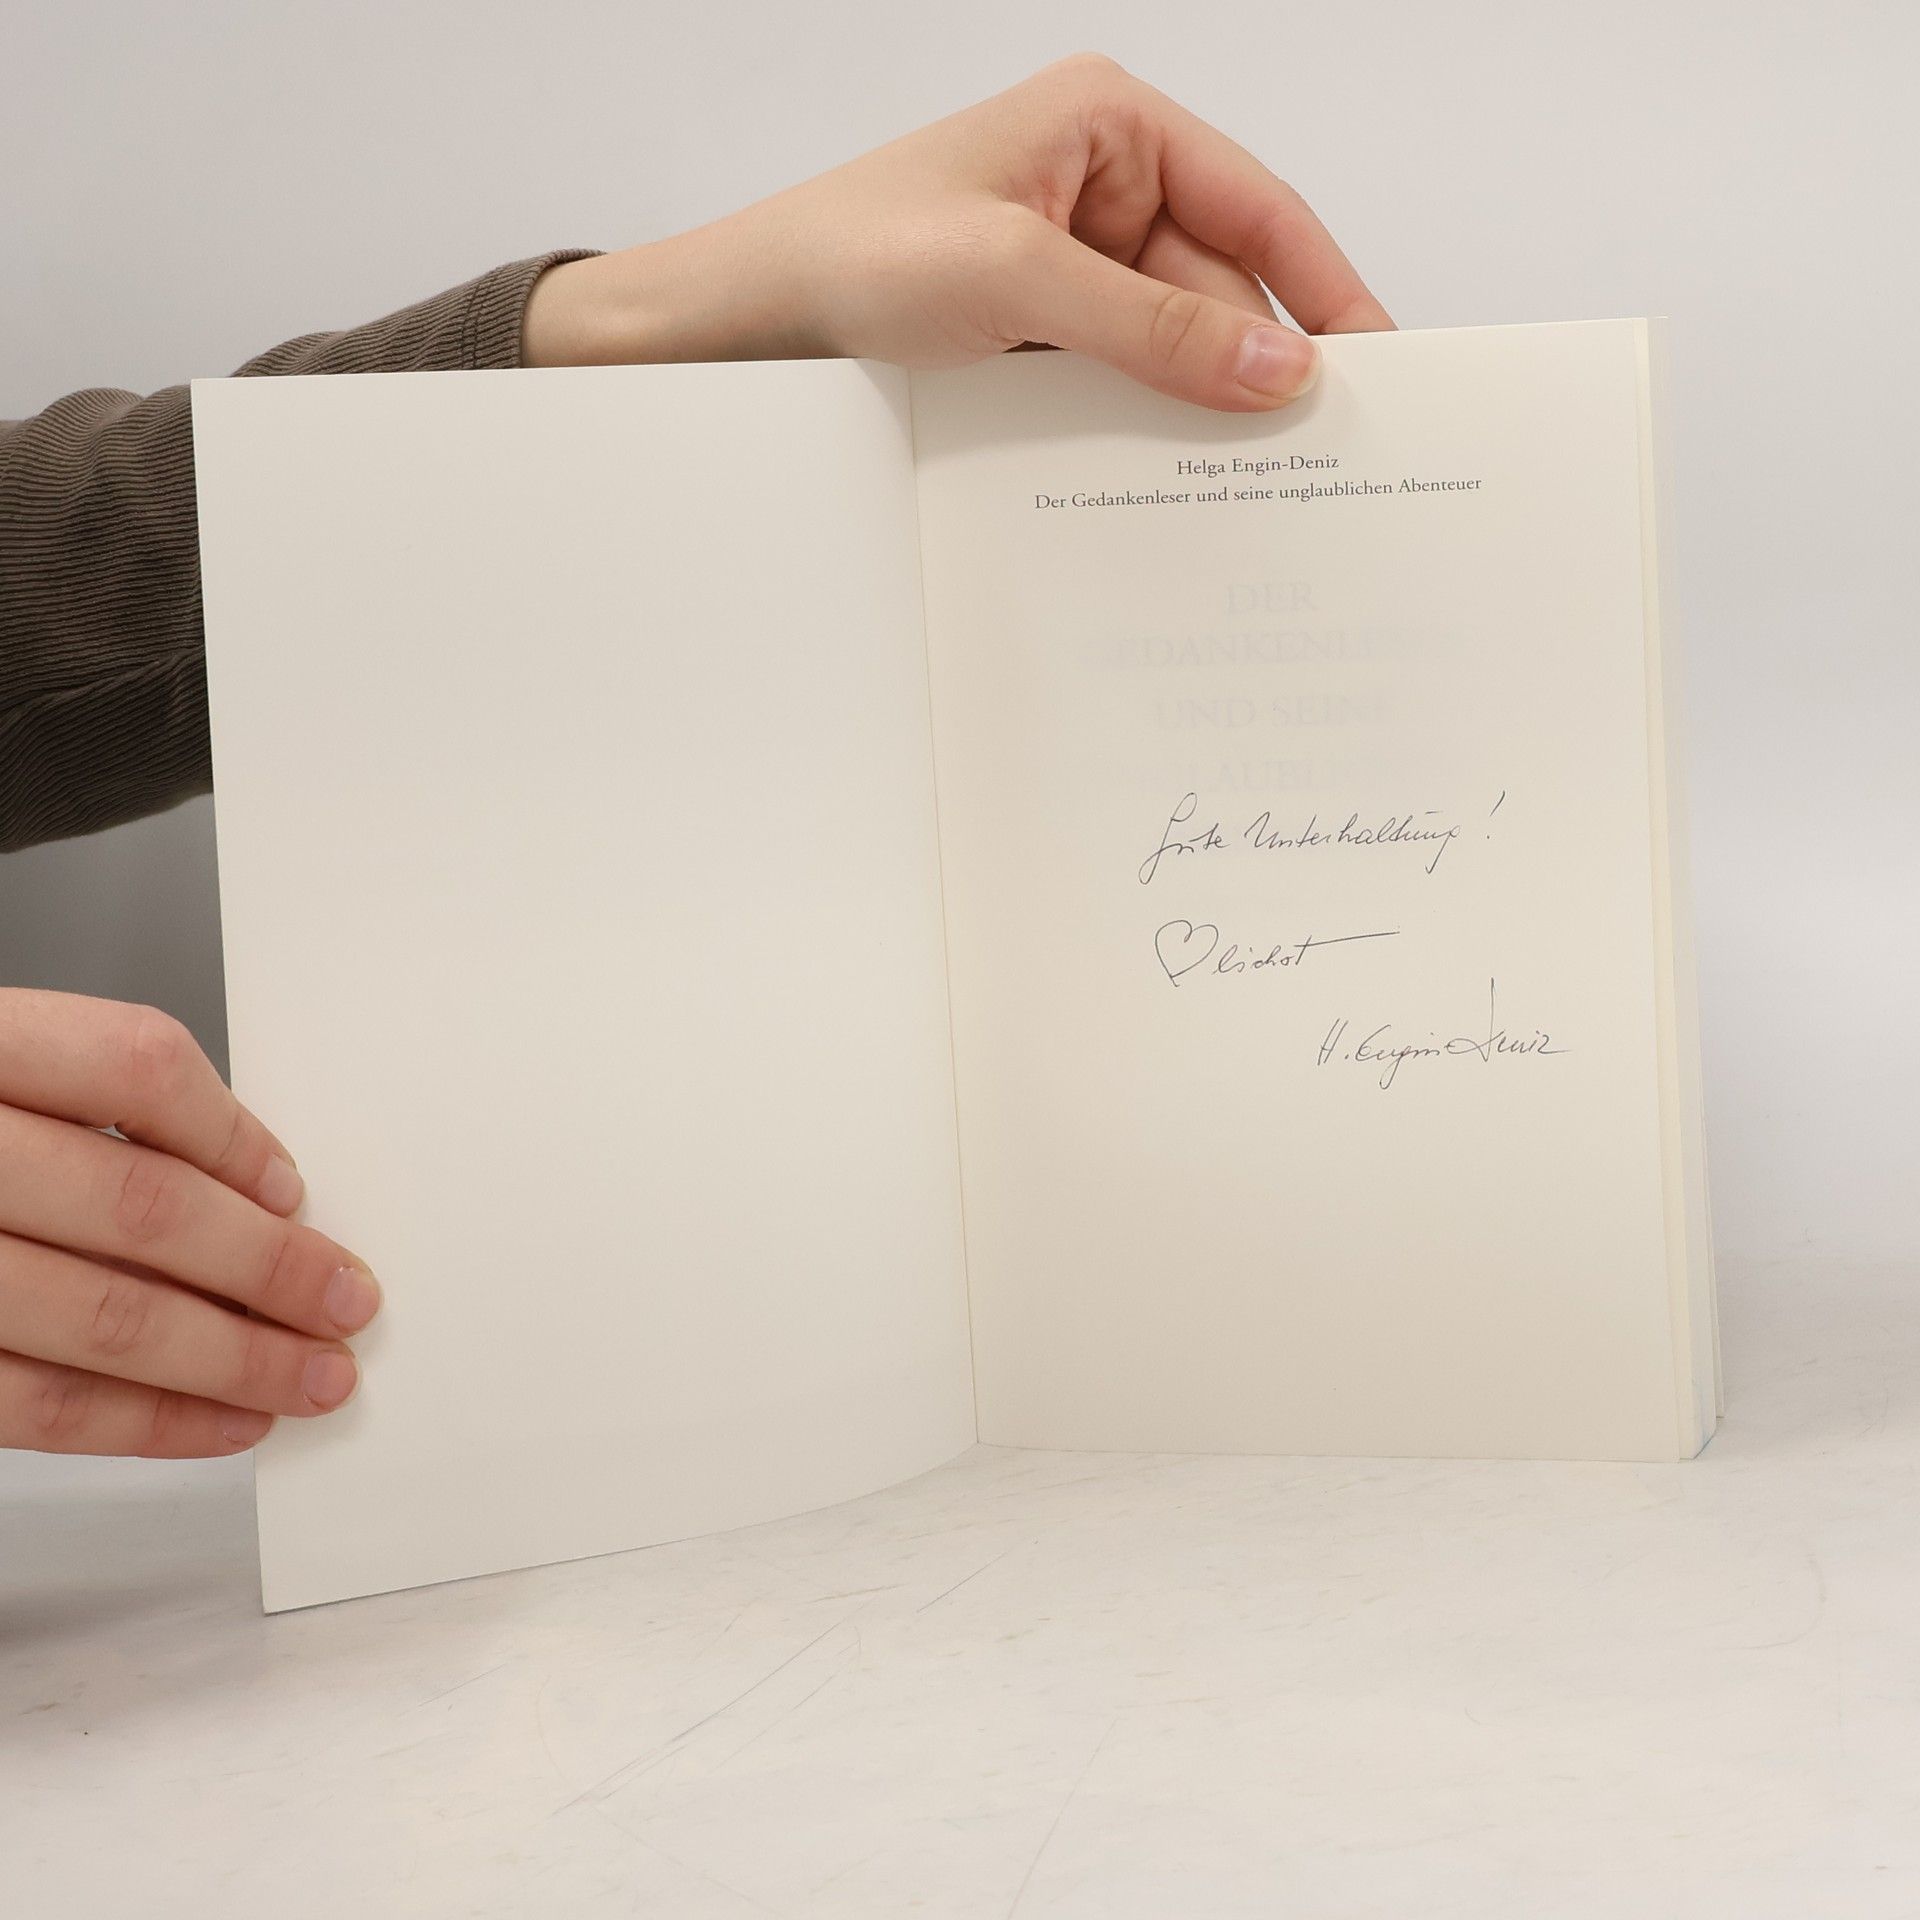 Helga Engin-Deniz
Der Gedankenleser und seine unglaublichen Abenteuer
DER
EDANKENLE
UND SEINE
LAUBLI
Gute Unterhaltung!
♡lichst
H. Engin-Deniz